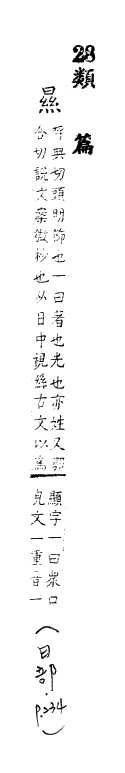 28 類 篇
㬎
呼典切頭明飾也一曰著也光也亦姓又鄂
合切說文衆微杪也从日中視絲古文以為
顯字一曰衆口
皃文一重音一
(日部·p.234)